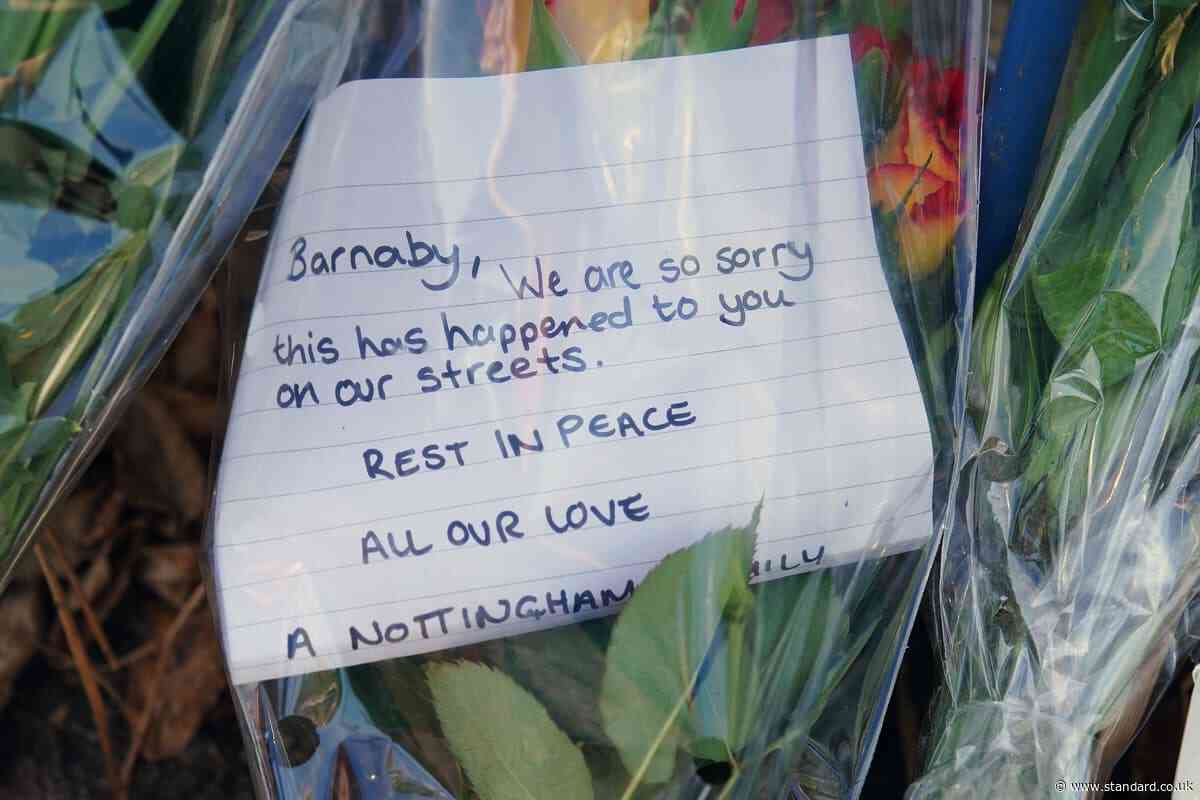 Barnaby, We are so sorry
this has happened to you
on our streets.
REST IN PEACE
ALL OUR LOVE
A NOTTINGHAM
© www.standard.co.uk